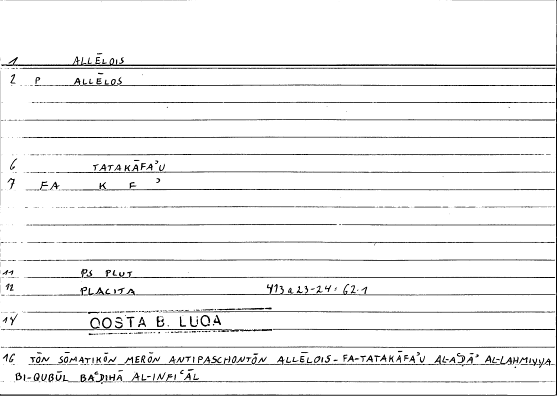 1 ALLĒLOIS
2 P ALLĒLOS
6 TATAKĀFAʾU
7 FA K F ʾ
11 PS PLUT
12 PLACITA 413a23-24: 62.1
14 QOSTA B. LUQA
16 TŌN SŌMATIKŌN MERŌN ANTIPASCHONTŌN ALLĒLOIS - FA-TATAKĀFAʾU AL-AʿḌĀʾ AL-LAHMIYYA
BI-QUBŪL BAʿḌIHĀ AL-INFIʿĀL